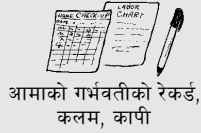 HOME CHECK-UP
LABOR
CHART
आमाको गर्भवतीको रेकर्ड,
कलम, कापी